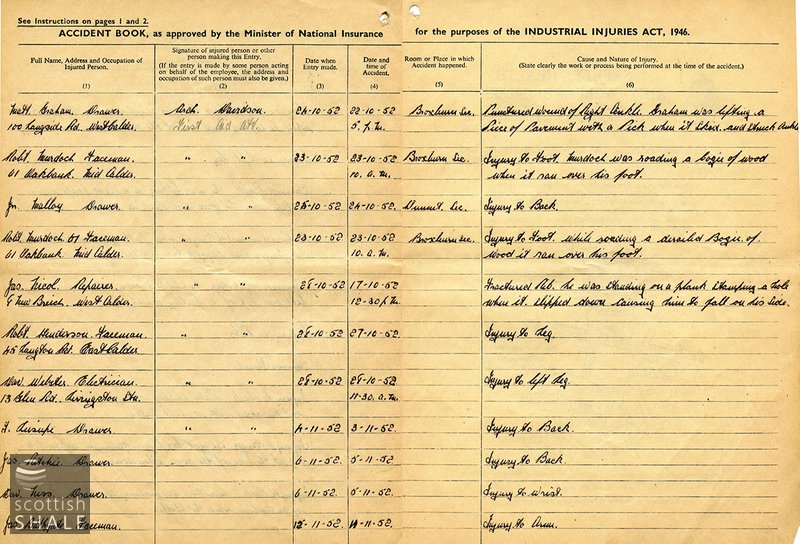 See Instructions on pages 1 and 2.
ACCIDENT BOOK, as approved by the Minister of National Insurance for the purposes of the INDUSTRIAL INJURIES ACT, 1946.
Full Name, Address and Occupation of Injured Person.
(1)
Signature of injured person or other person making this Entry.
(If the entry is made by some person acting on behalf of the employee, the address and occupation of such person must also be given.)
(2)
Date when Entry made.
(3)
Date and time of Accident.
(4)
Room or Place in which Accident happened.
(5)
Cause and Nature of Injury.
(State clearly the work or process being performed at the time of the accident.)
(6)
Matt. Graham Drawer Arch. Davidson 24-10-52 22-10-52 Broxburn Sec. Punctured wound of Right Ankle. Graham was lifting a
100 Langside Rd. West Calder. First Aid Att. 5. p.m. Piece of Pavement with a Pick when it and struck Ankle
Robt. Murdoch Faceman " " 23-10-52 23-10-52 Broxburn Sec Injury to Foot. Murdoch was roading a bogie of wood
61 Oakbank. Mid Calder. 10. a.m. when it ran over his foot.
Jn. Malloy Drawer " " 25-10-52 24-10-52 Dunnet. Sec. Injury to Back.
Robt. Murdoch Faceman. " " 23-10-52 23-10-52 Broxburn Sec. Injury to Foot. while roading a derailed Bogie of
61 Oakbank Mid Calder. 10. a.m. wood it ran over his foot.
Jas. Nicol Repairer " " 28-10-52 17-10-52 Fractured Rib. he was standing on a plank stamping a hole
9 New Breich. West Calder. 12-30 p.m. when it slipped down causing him to fall on his side.
Robt. Henderson Faceman. " " 28-10-52 27-10-52 Injury to Leg.
45 Langton Rd. East Calder
Webster Electrician. " " 28-10-52 28-10-52 Injury to left Leg.
13 Glen Rd. Livingston Stn. 11-30. a.m.
Drawer " " 4-11-52 3-11-52. Injury to Back.
Jas. Ritchie Drawer. 6-11-52 5-11-52. Injury to Back.
Drawer 6-11-52 5-11-52. Injury to wrist.
Faceman. -11-52. -11-52. Injury to Arm.
scottish
SHALE